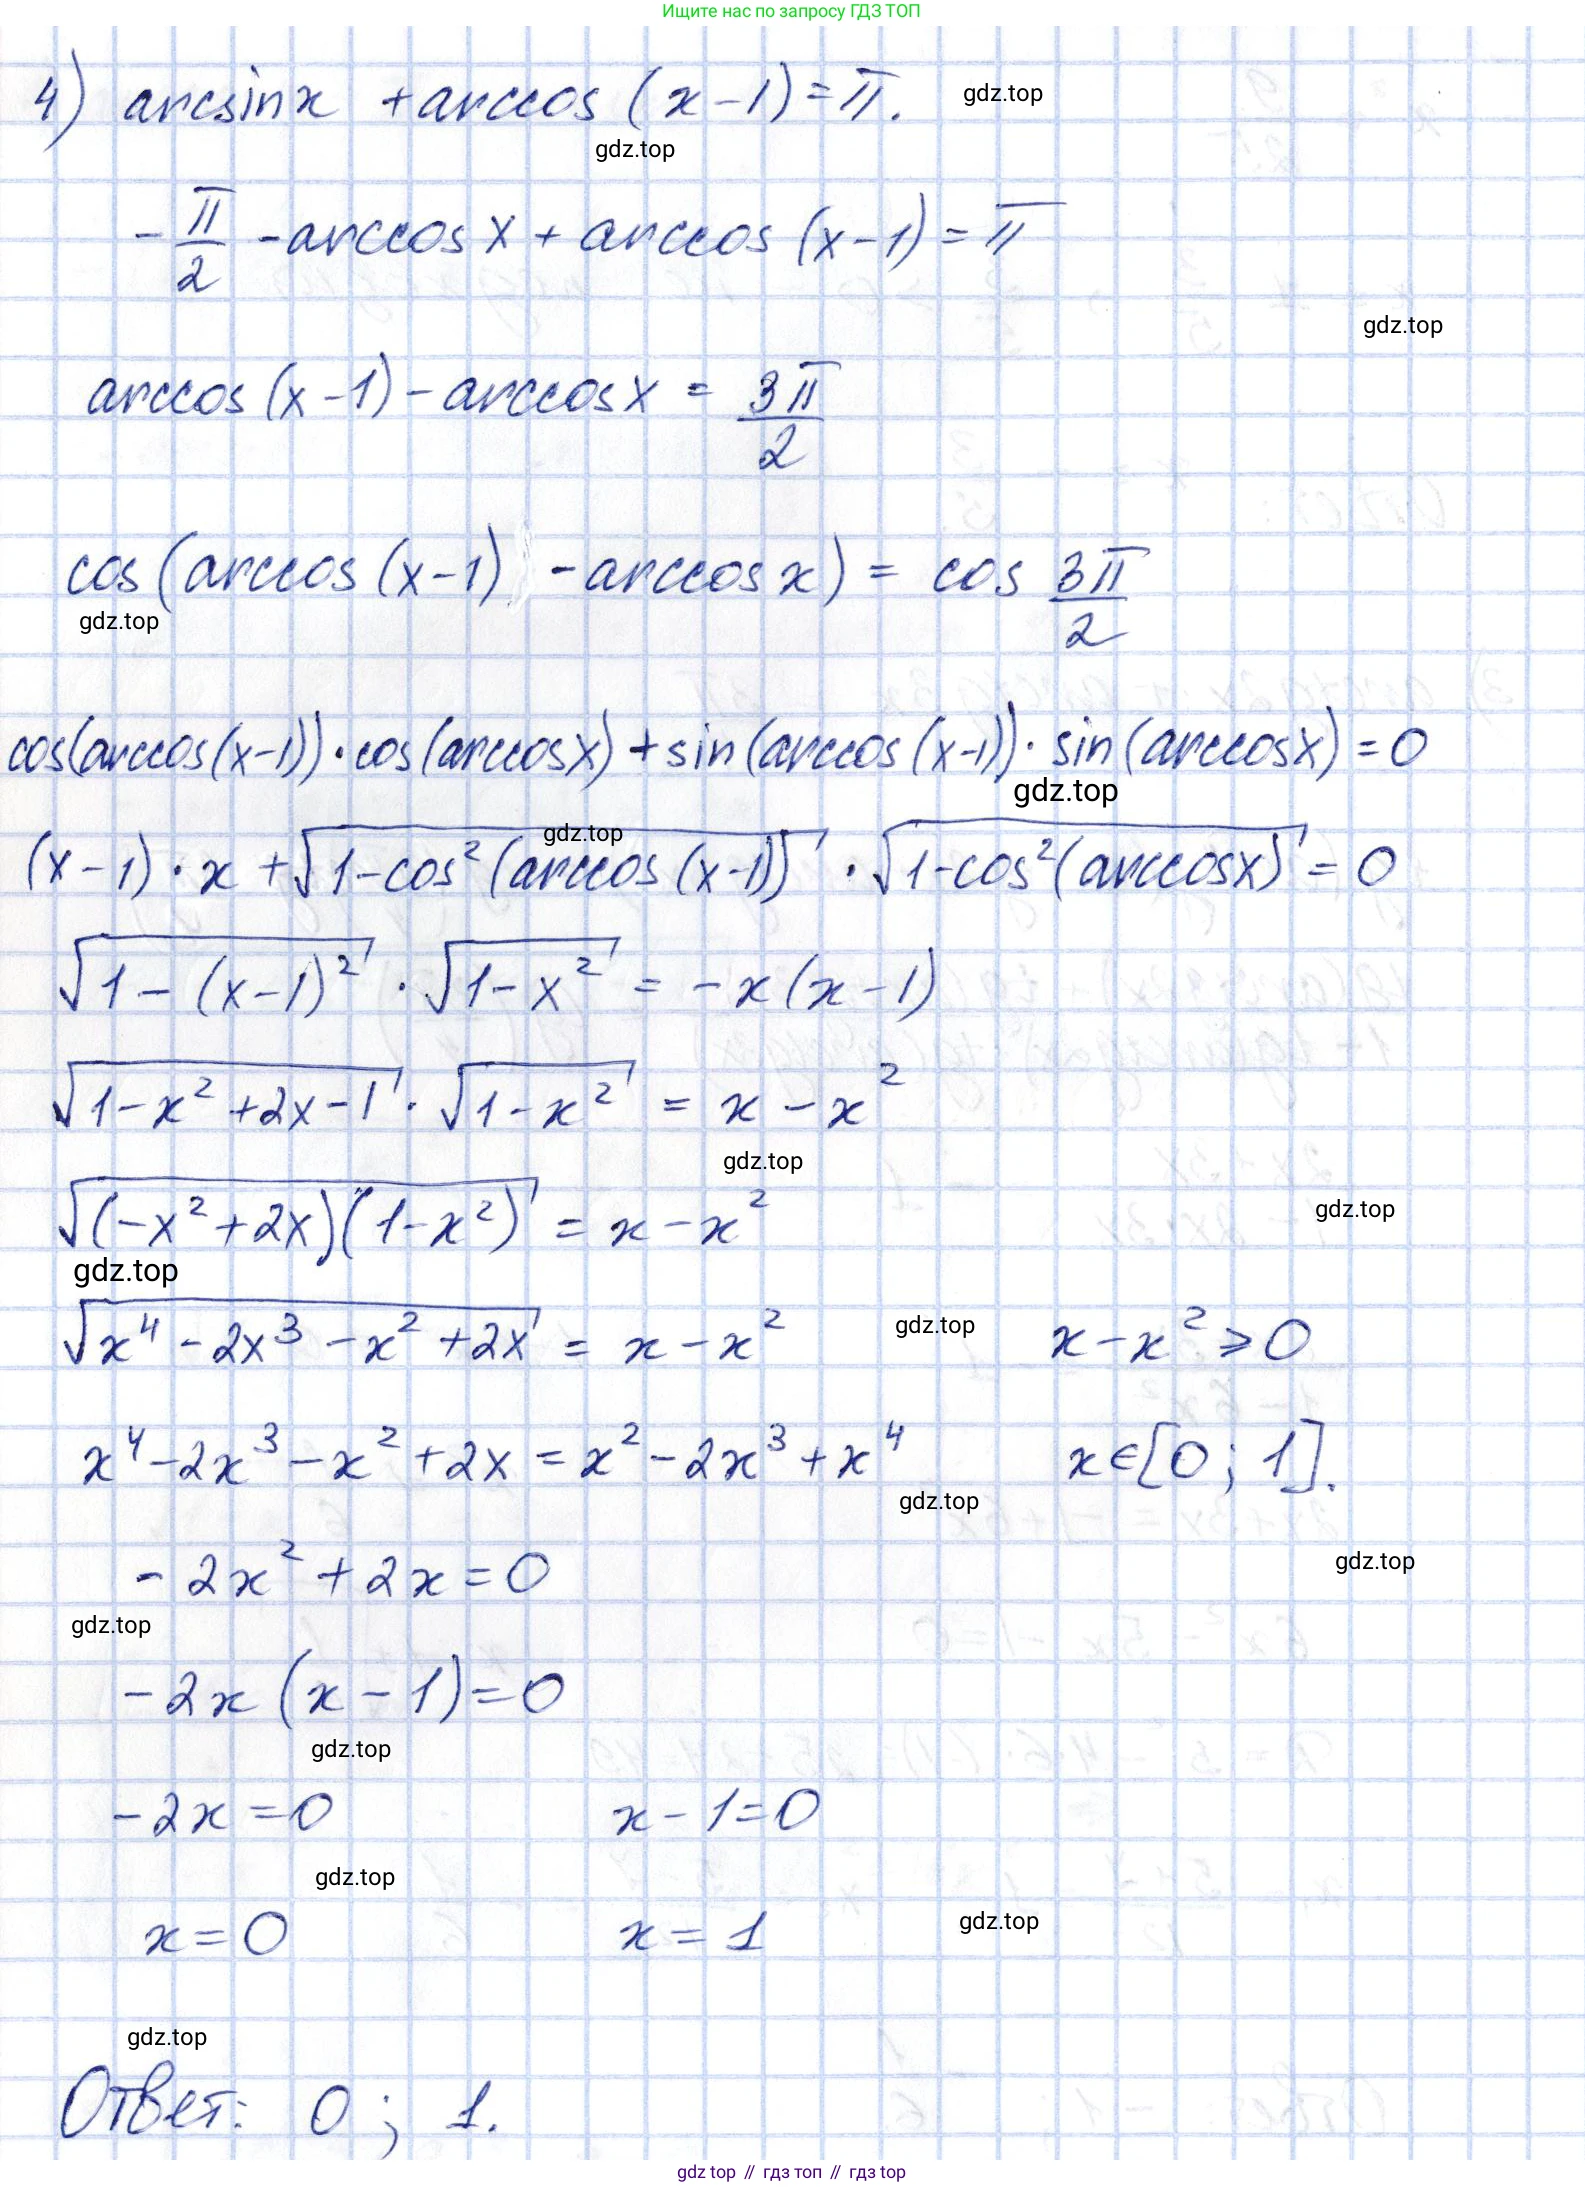 Ищите нас по запросу ГДЗ ТОП
4) arcsin x + arccos (x - 1) = π.
gdz.top
gdz.top
- π/2 - arccos x + arccos (x - 1) = π
gdz.top
arccos (x - 1) - arccos x = 3π/2
cos (arccos (x - 1) - arccos x) = cos 3π/2
gdz.top
cos(arccos(x-1)) · cos(arccos x) + sin(arccos(x-1)) · sin(arccos x) = 0
gdz.top
gdz.top
(x - 1) · x + √(1 - cos² (arccos (x-1))) · √(1 - cos² (arccos x)) = 0
√(1 - (x-1)²) · √(1 - x²) = - x (x - 1)
√(1 - x² + 2x - 1) · √(1 - x²) = x - x²
gdz.top
√((-x² + 2x)(1 - x²)) = x - x²
gdz.top
gdz.top
√(x⁴ - 2x³ - x² + 2x) = x - x² x - x² ⩾ 0
gdz.top
x⁴ - 2x³ - x² + 2x = x² - 2x³ + x⁴ x ∈ [0; 1].
gdz.top
gdz.top
- 2x² + 2x = 0
gdz.top
- 2x (x - 1) = 0
gdz.top
- 2x = 0 x - 1 = 0
gdz.top
x = 0 x = 1
gdz.top
gdz.top
Ответ: 0; 1.
gdz top // гдз топ // гдз top